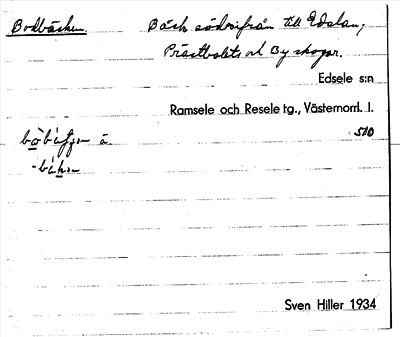 Bodbäcken. Bäck söderifrån till Edslan;
Prästbolets och By skogar.
Edsele s:n
Ramsele och Resele tg., Västernorrl. l.
510
Sven Hiller 1934